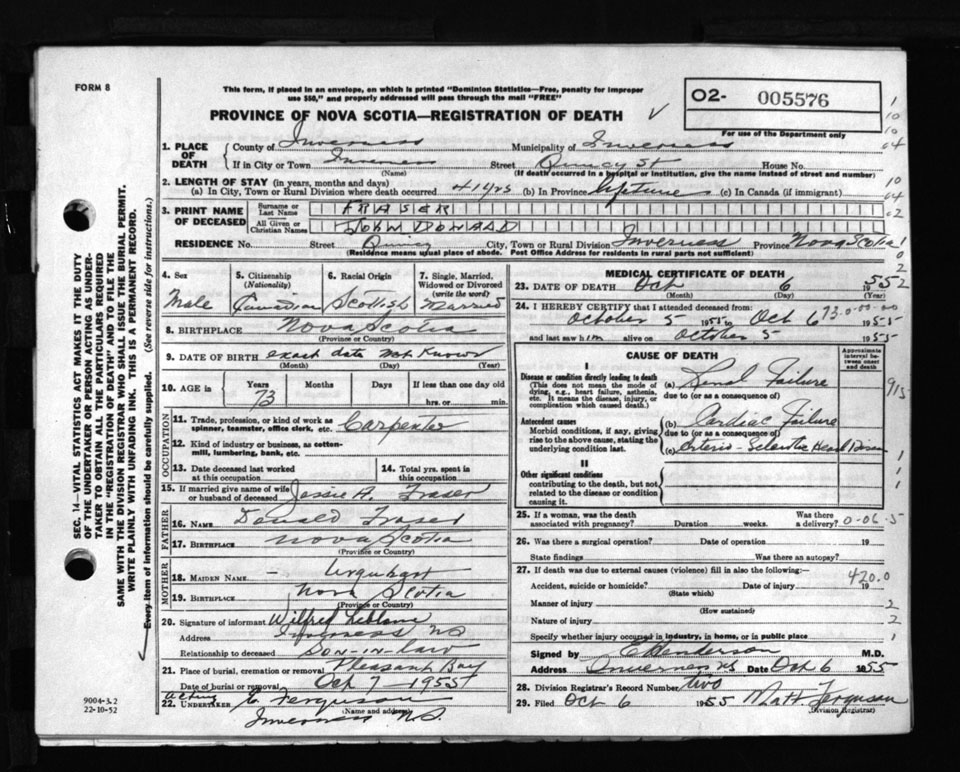 FORM 8
This form, if placed in an envelope, on which is printed "Dominion Statistics—Free, penalty for improper
use $50," and properly addressed will pass through the mail "FREE"
O2- 005576
For use of the Department only
PROVINCE OF NOVA SCOTIA—REGISTRATION OF DEATH
1. PLACE OF DEATH
County of Inverness Municipality of Inverness
If in City or Town Inverness Street Quincy St House No.
(Name) (If death occurred in a hospital or institution, give the name instead of street and number)
2. LENGTH OF STAY (in years, months and days)
(a) In City, Town or Rural Division where death occurred 41 yrs (b) In Province Lifetime (c) In Canada (if immigrant)
3. PRINT NAME OF DECEASED
Surname or Last Name FRASER
All Given or Christian Names JOHN DONALD
RESIDENCE No. Street Quincy City, Town or Rural Division Inverness Province Nova Scotia
(Residence means usual place of abode. Post Office Address for residents in rural parts not sufficient)
4. Sex
Male
5. Citizenship (Nationality)
Canadian
6. Racial Origin
Scottish
7. Single, Married, Widowed or Divorced (write the word)
Married
8. BIRTHPLACE Nova Scotia
(Province or Country)
9. DATE OF BIRTH exact date not known
(Month) (Day) (Year)
10. AGE in Years Months Days If less than one day old
73 hrs. or min.
OCCUPATION
11. Trade, profession, or kind of work as
spinner, teamster, office clerk, etc. Carpenter
12. Kind of industry or business, as cotton-
mill, lumbering, bank, etc.
13. Date deceased last worked
at this occupation
14. Total yrs. spent in
this occupation
15. If married give name of wife
or husband of deceased Jessie A. Fraser
FATHER
16. NAME Donald Fraser
17. BIRTHPLACE Nova Scotia
(Province or Country)
MOTHER
18. MAIDEN NAME — Urquhart
19. BIRTHPLACE Nova Scotia
(Province or Country)
20. Signature of informant Wilfred Leblanc
Address Inverness NS
Relationship to deceased Son-in-law
21. Place of burial, cremation or removal Pleasant Bay
Date of burial or removal Oct 7 1955
Acting
22. UNDERTAKER C Ferguson
(Name and address)
Inverness N.S.
MEDICAL CERTIFICATE OF DEATH
23. DATE OF DEATH Oct 6 1955
(Month) (Day) (Year)
24. I HEREBY CERTIFY that I attended deceased from:
October 5 1955 to Oct 6 1955
and last saw him alive on October 5 1955
73-0-00-00
CAUSE OF DEATH
Approximate interval between onset and death
I
Disease or condition directly leading to death
(This does not mean the mode of
dying, e.g., heart failure, asthenia,
etc. It means the disease, injury, or
complication which caused death.)
(a) Renal Failure
due to (or as a consequence of)
Antecedent causes
Morbid conditions, if any, giving
rise to the above cause, stating the
underlying condition last.
(b) Cardiac Failure
due to (or as a consequence of)
(c) Arterio-Sclerotic Heart Disease
II
Other significant conditions
contributing to the death, but not
related to the disease or condition
causing it.
25. If a woman, was the death
associated with pregnancy? Duration weeks.
Was there
a delivery? 0-06-5
26. Was there a surgical operation? Date of operation 19
State findings Was there an autopsy?
27. If death was due to external causes (violence) fill in also the following:—
420.0
Accident, suicide or homicide? Date of injury 19
(State which)
Manner of injury
(How sustained)
Nature of injury
Specify whether injury occurred in industry, in home, or in public place
Signed by Henderson M.D.
Address Inverness NS Date Oct 6 1955
28. Division Registrar's Record Number two
29. Filed Oct 6 1955 Matt. Ferguson
(Division Registrar)
SEC. 14—VITAL STATISTICS ACT MAKES IT THE DUTY
OF THE UNDERTAKER OR PERSON ACTING AS UNDER-
TAKER TO OBTAIN ALL THE PARTICULARS REQUIRED
IN THE "REGISTRATION OF DEATH" AND TO FILE THE
SAME WITH THE DIVISION REGISTRAR WHO SHALL ISSUE THE BURIAL PERMIT.
WRITE PLAINLY WITH UNFADING INK. THIS IS A PERMANENT RECORD.
Every item of information should be carefully supplied. (See reverse side for instructions.)
9004-3.2
22-10-52